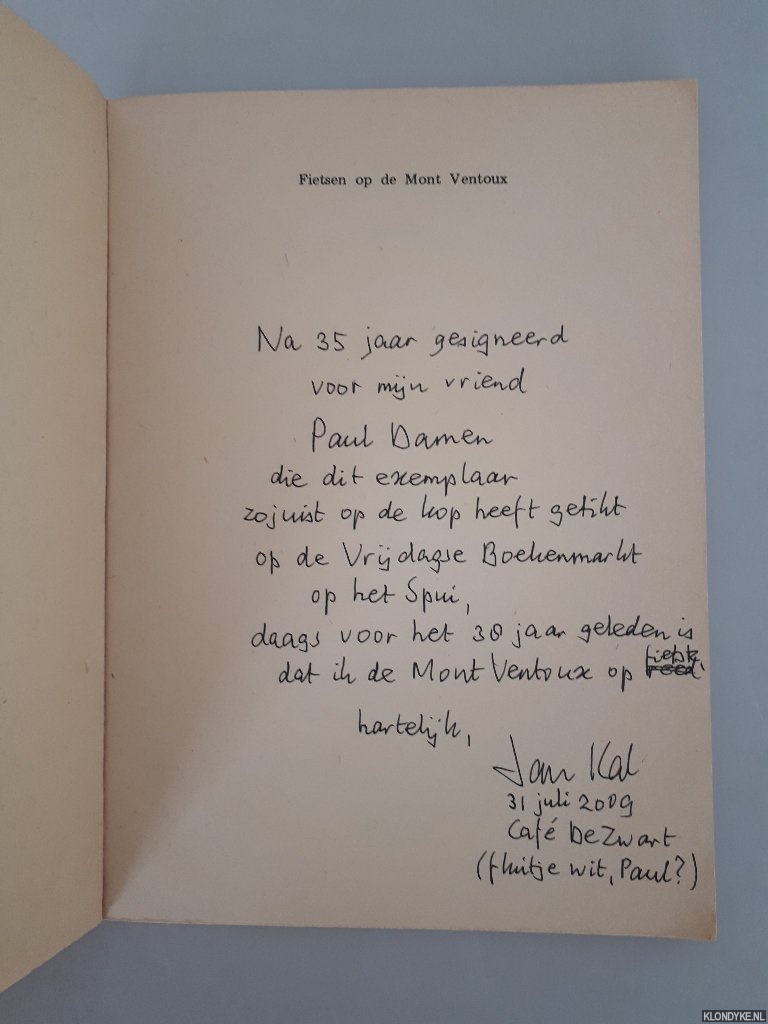 Fietsen op de Mont Ventoux
Na 35 jaar gesigneerd
voor mijn vriend
Paul Damen
die dit exemplaar
zojuist op de kop heeft getikt
op de Vrijdagse Boekenmarkt
op het Spui,
daags voor het 30 jaar geleden is
dat ik de Mont Ventoux op fietste.
hartelijk,
Jan Kal
31 juli 2009
Café De Zwart
(fluitje wit, Paul?)
KLONDYKE.NL